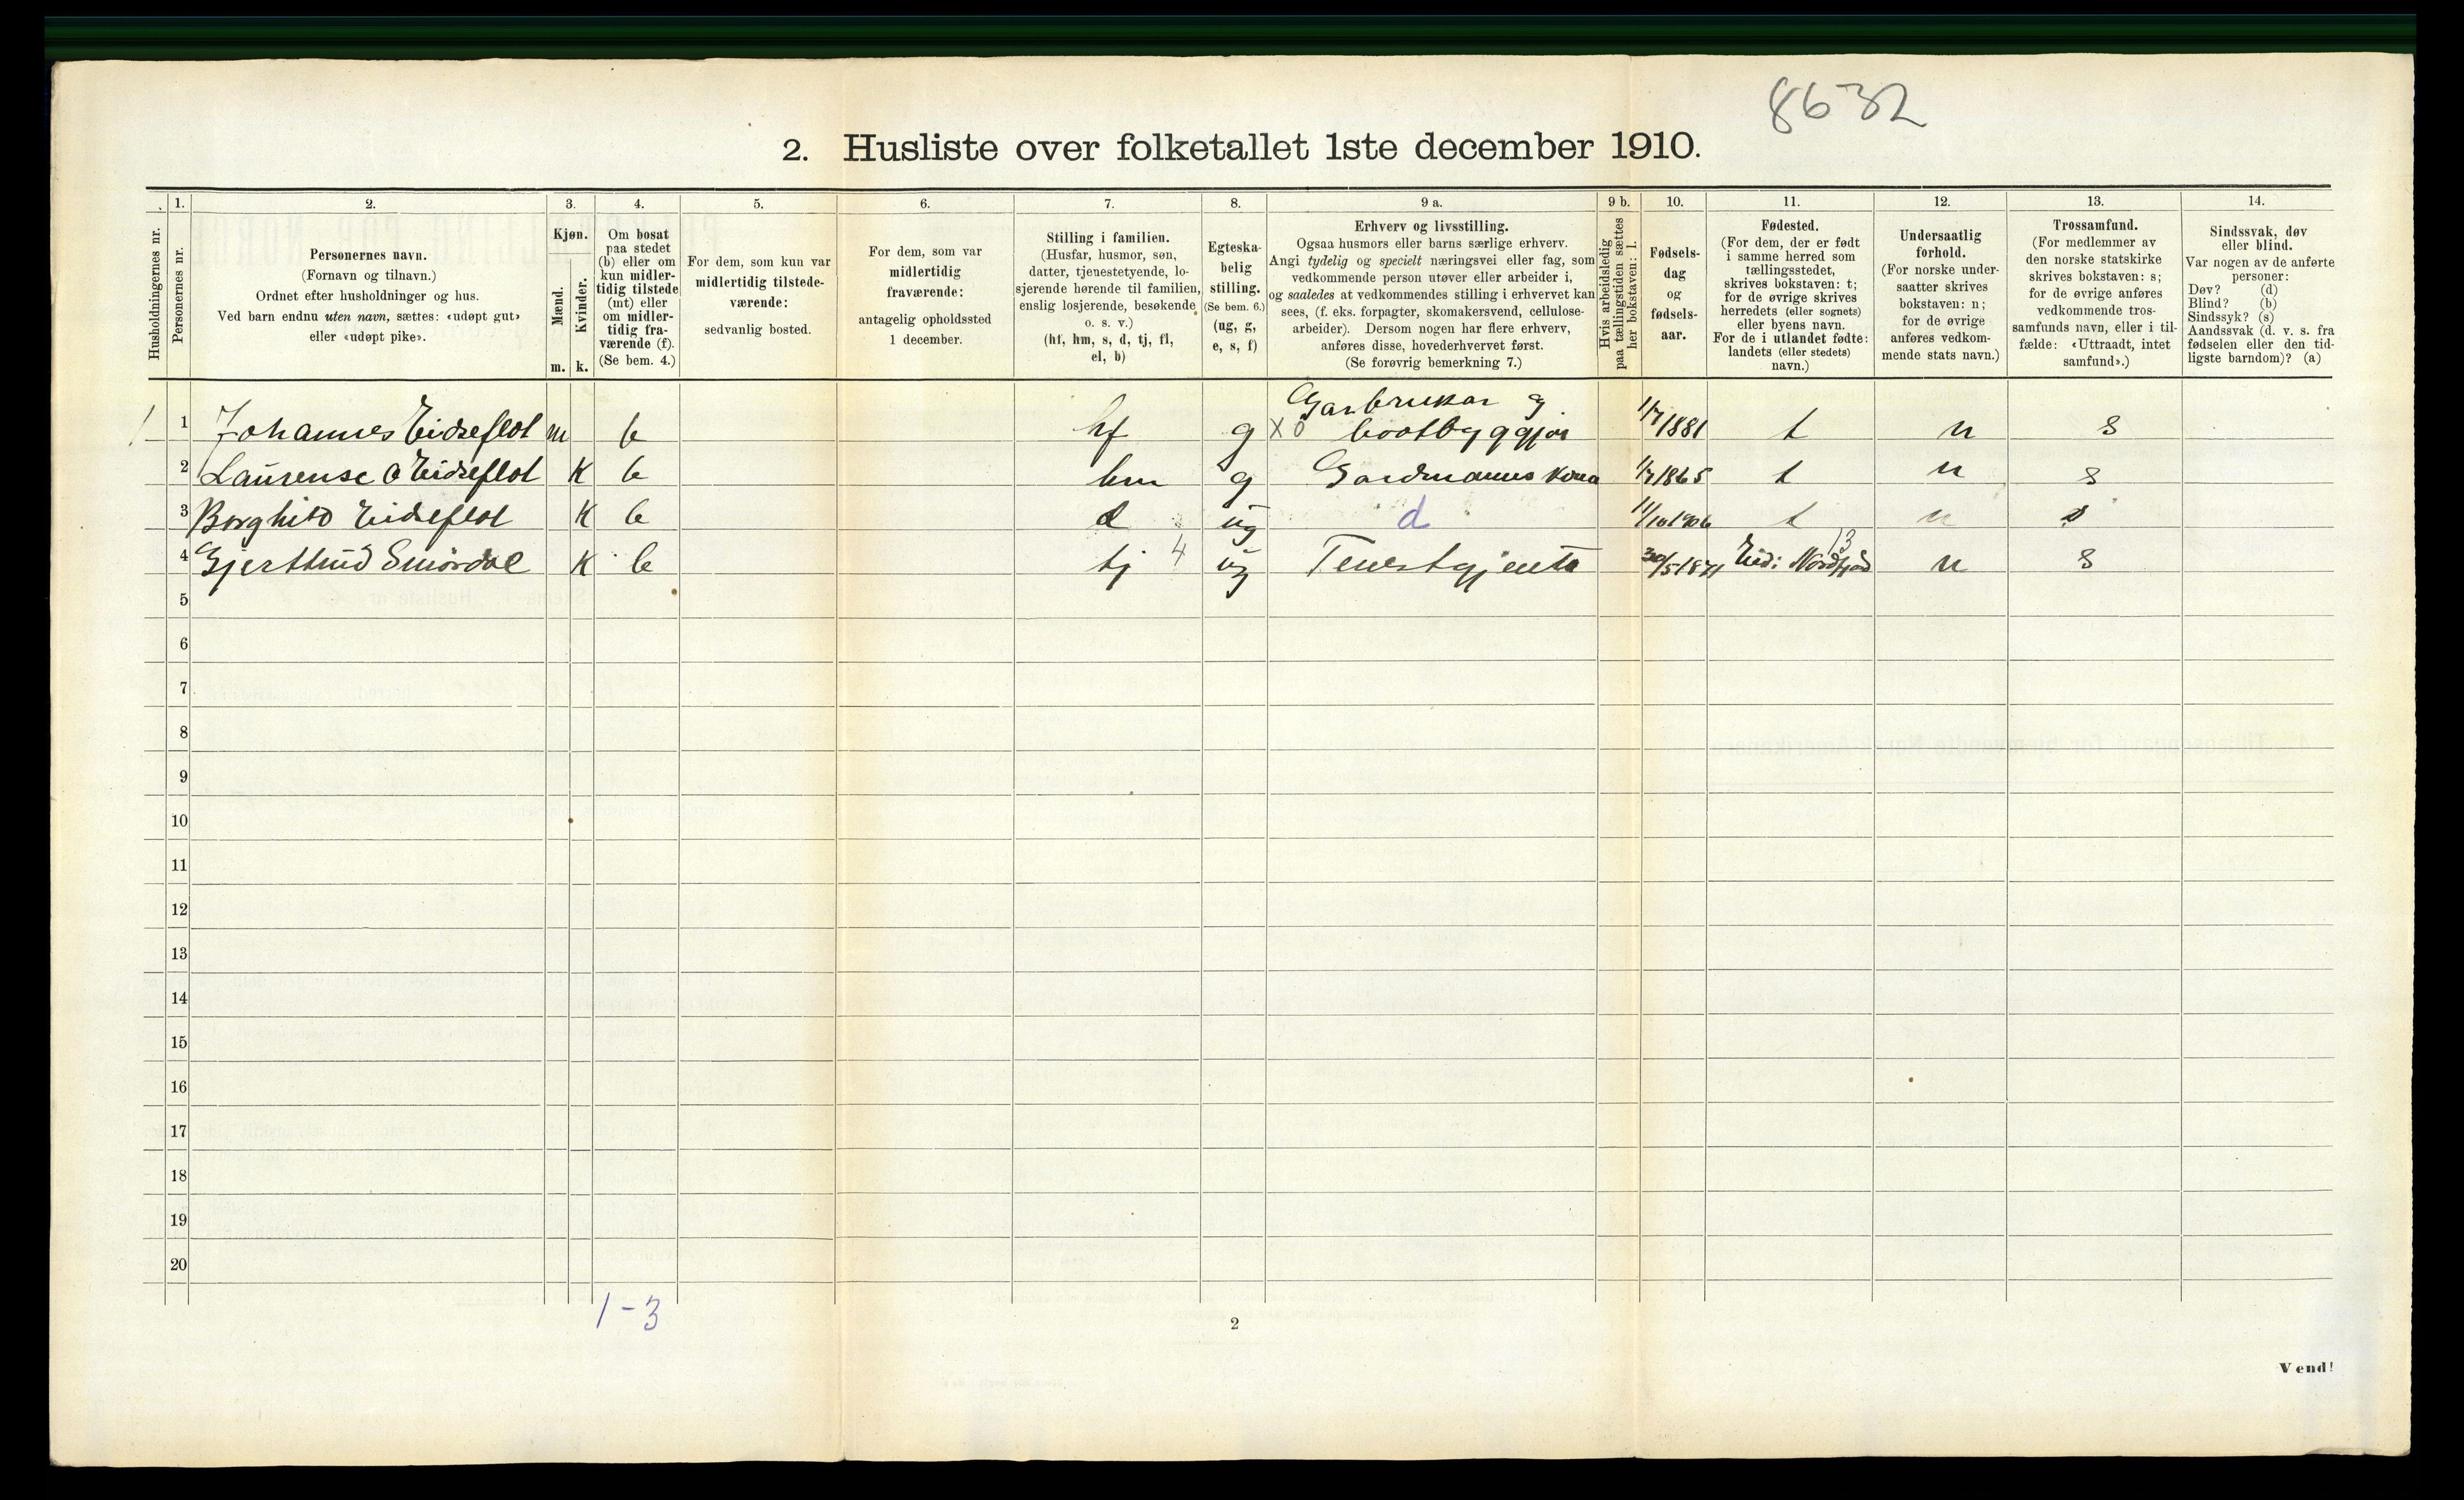 8632
2. Husliste over folketallet 1ste december 1910.
Husholdningernes nr.
1.
Personernes nr.
2.
Personernes navn.
(Fornavn og tilnavn.)
Ordnet efter husholdninger og hus.
Ved barn endnu uten navn, sættes: «udøpt gut»
eller «udøpt pike».
3.
Kjøn.
Mænd.
Kvinder.
m. k.
4.
Om bosat
paa stedet
(b) eller om
kun midler-
tidig tilstede
(mt) eller
om midler-
tidig fra-
værende (f).
(Se bem. 4.)
5.
For dem, som kun var
midlertidig tilstede-
værende:
sedvanlig bosted.
6.
For dem, som var
midlertidig
fraværende:
antagelig opholdssted
1 december.
7.
Stilling i familien.
(Husfar, husmor, søn,
datter, tjenestetyende, lo-
sjerende hørende til familien,
enslig losjerende, besøkende
o. s. v.)
(hf, hm, s, d, tj, fl,
el, b)
8.
Egteska-
belig
stilling.
(Se bem. 6.)
(ug, g,
e, s, f)
9 a.
Erhverv og livsstilling.
Ogsaa husmors eller barns særlige erhverv.
Angi tydelig og specielt næringsvei eller fag, som
vedkommende person utøver eller arbeider i,
og saaledes at vedkommendes stilling i erhvervet kan
sees, (f. eks. forpagter, skomakersvend, cellulose-
arbeider). Dersom nogen har flere erhverv,
anføres disse, hovederhvervet først.
(Se forøvrig bemerkning 7.)
9 b.
Hvis arbeidsledig
paa tællingstiden sættes
her bokstaven: l.
10.
Fødsels-
dag
og
fødsels-
aar.
11.
Fødested.
(For dem, der er født
i samme herred som
tællingsstedet,
skrives bokstaven: t;
for de øvrige skrives
herredets (eller sognets)
eller byens navn.
For de i utlandet fødte:
landets (eller stedets)
navn.)
12.
Undersaatlig
forhold.
(For norske under-
saatter skrives
bokstaven: n;
for de øvrige
anføres vedkom-
mende stats navn.)
13.
Trossamfund.
(For medlemmer av
den norske statskirke
skrives bokstaven: s;
for de øvrige anføres
vedkommende tros-
samfunds navn, eller i til-
fælde: «Uttraadt, intet
samfund».)
14.
Sindssvak, døv
eller blind.
Var nogen av de anførte
personer:
Døv? (d)
Blind? (b)
Sindssyk? (s)
Aandssvak (d. v. s. fra
fødselen eller den tid-
ligste barndom)? (a)
1 1 Johannes Eidseflot m b hf g X 0 Garbrukar g baatbyggjar 1/7 1881 t n s
2 Laurense O Eidseflot K b hm g Gardmanns kona 1/7 1865 t n s
3 Borghild Eidseflot K b d ug d 11/10 1906 t n s
4 Gjertrud Smördal K b tj 4 ug Tenestgjenta 30/5 1871 Eid i Nordfjord 13 n s
5
6
7
8
9
10
11
12
13
14
15
16
17
18
19
20
1-3
2
Vend!